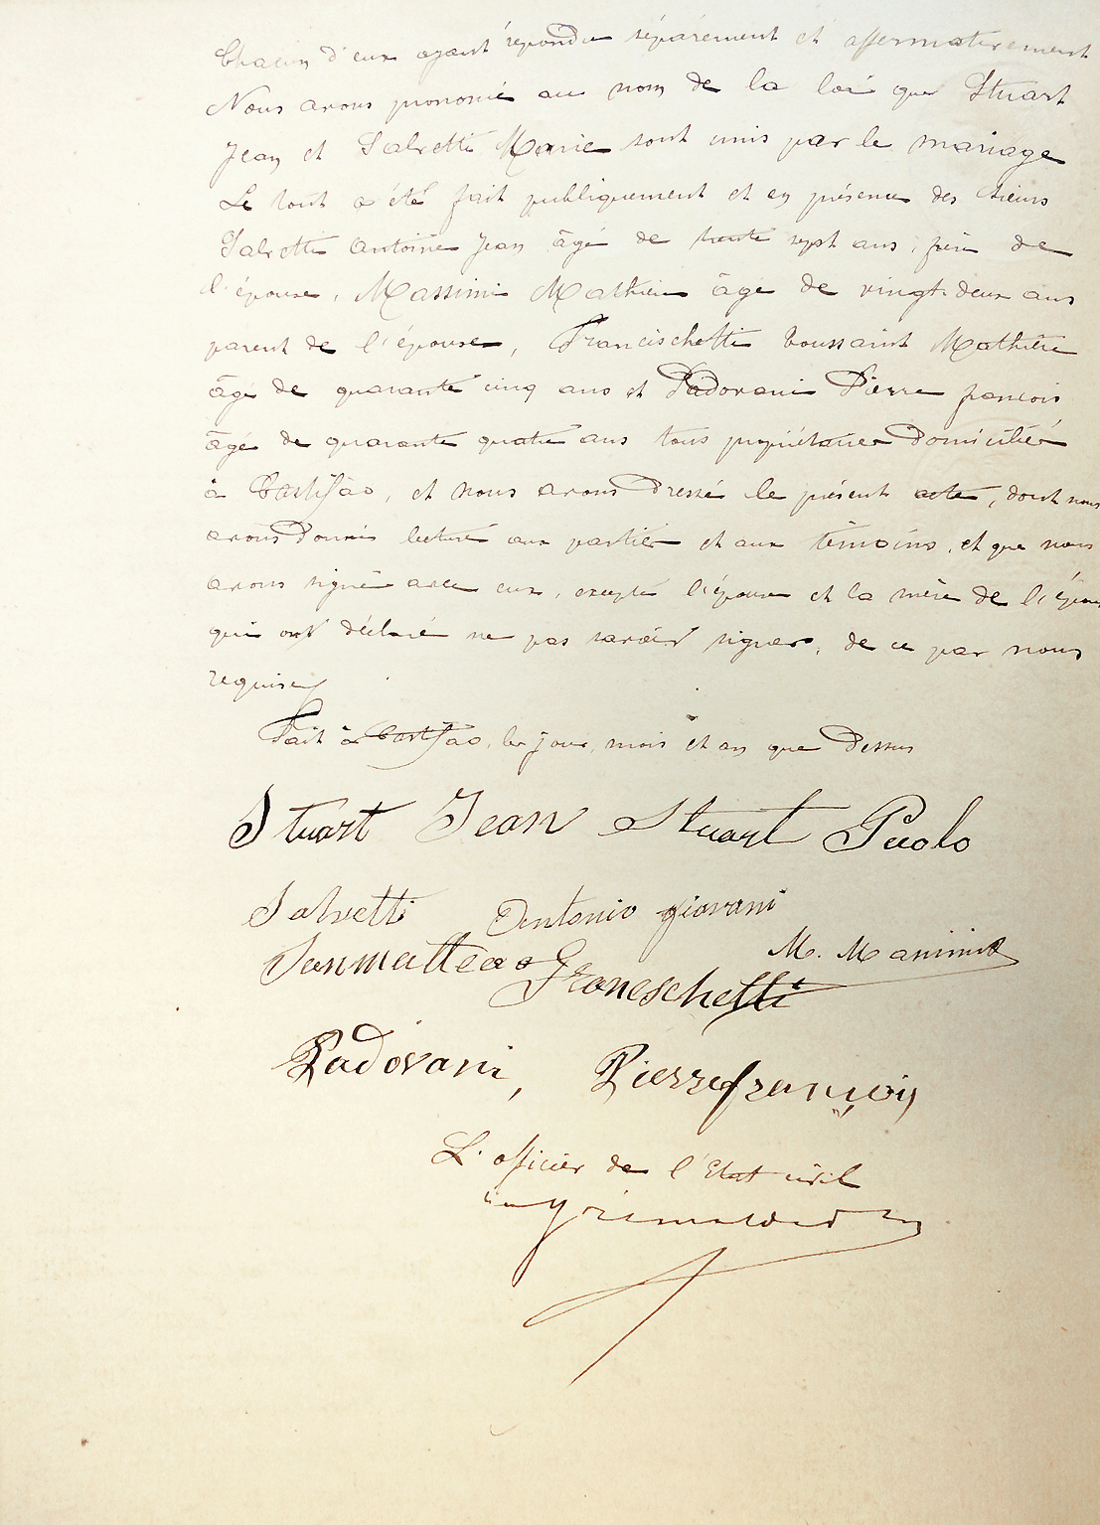 Chacun d'eux ayant répondu séparément et affermativement
Nous avons prononcé au nom de la loi que Stuart
Jean et Salvetti Marie sont unis par le mariage
Le tout a été fait publiquement et en présence des sieurs
Salvetti Antoine Jean âgé de trente sept ans, frère de
l'épouse, Massimi Mathieu âgé de vingt-deux ans
parent de l'épouse, Francischetti Toussaint Mathieu
âgé de quarante cinq ans et Padovani Pierre françois
âgé de quarante quatre ans tous propriétaires domiciliés
à Castifao, et nous avons dressé le présent acte, dont nous
avons donné lecture aux parties et aux témoins, et que nous
avons signé avec eux, excepté l'épouse et la mère de l'épouse
qui ont déclaré ne pas savoir signer, de ce par nous
requises
Fait à Castifao, les jour, mois et an que dessus
Stuart Jean Stuart Paolo
Salvetti Antonio giovani
M. Massimi
Sanmatteo Franceschetti
Padovani, Pierrefrançois
L'officier de l'Etat civil